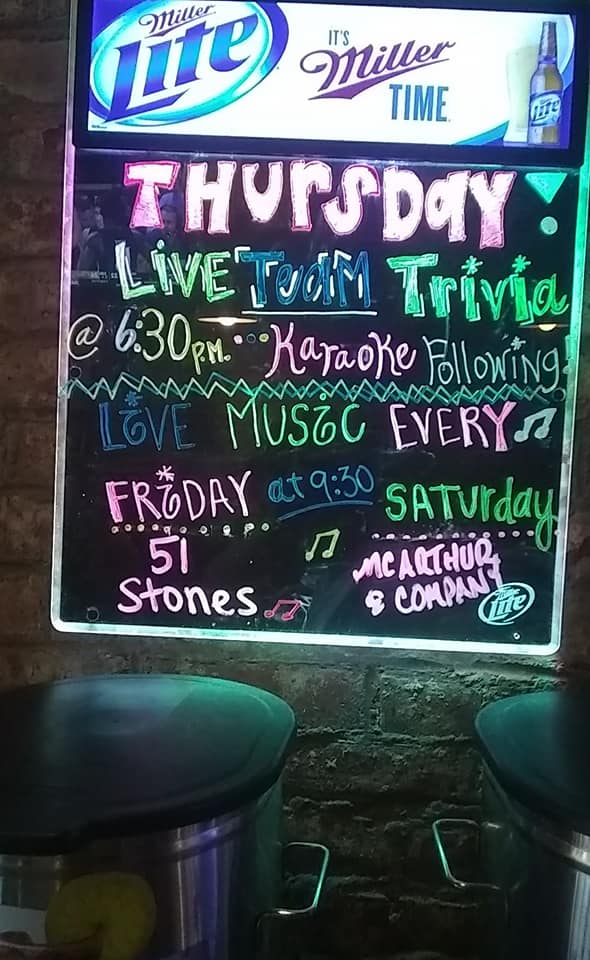 Miller
Lite
IT'S
Miller
TIME
THURSDAY
LIVE TEAM Trivia
@ 6:30 P.M. Karaoke Following!
LIVE MUSIC EVERY
FRIDAY at 9:30 SATUrday
51
Stones
MCARTHUR
& COMPANY
Lite